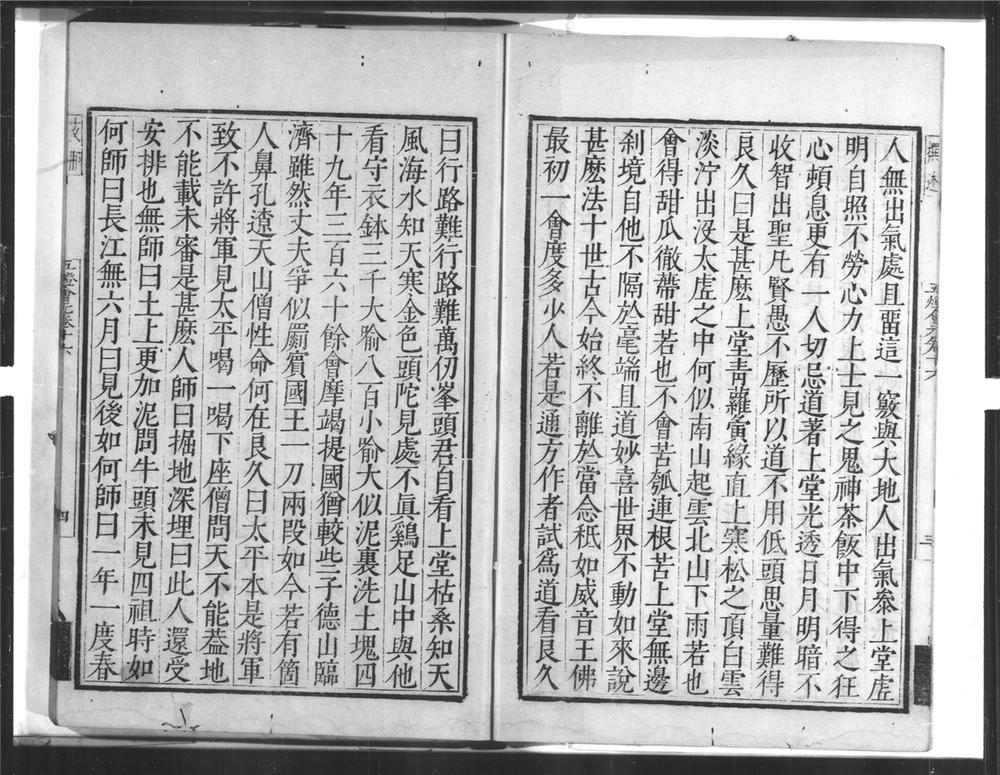 人無出氣處且畱這一竅與大地人出氣叅上堂虛
明自照不勞心力上士見之鬼神茶飯中下得之狂
心頓息更有一人切忌道著上堂光透日月明暗不
收智出聖凡賢愚不歷所以道不用低頭思量難得
良久曰是甚麽上堂靑蘿夤緣直上寒松之頂白雲
淡泞出沒太虛之中何似南山起雲北山下雨若也
會得甜瓜徹蔕甜若也不會苦瓠連根苦上堂無邊
刹境自他不隔於毫端且道妙喜世界不動如來說
甚麽法十世古今始終不離於當念秖如威音王佛
最初一會度多少人若是通方作者試爲道看良久
三
曰行路難行路難萬仞峯頭君自看上堂枯桑知天
風海水知天寒金色頭陀見處不眞鷄足山中與他
看守衣鉢三千大喻八百小喻大似泥裏洗土塊四
十九年三百六十餘會摩竭提國猶較些子德山臨
濟雖然丈夫爭似罽賓國王一刀兩段如今若有箇
人鼻孔遼天山僧性命何在良久曰太平本是將軍
致不許將軍見太平喝一喝下座僧問天不能葢地
不能載未審是甚麽人師曰掘地深埋曰此人還受
安排也無師曰土上更加泥問牛頭未見四祖時如
何師曰長江無六月曰見後如何師曰一年一度春
四